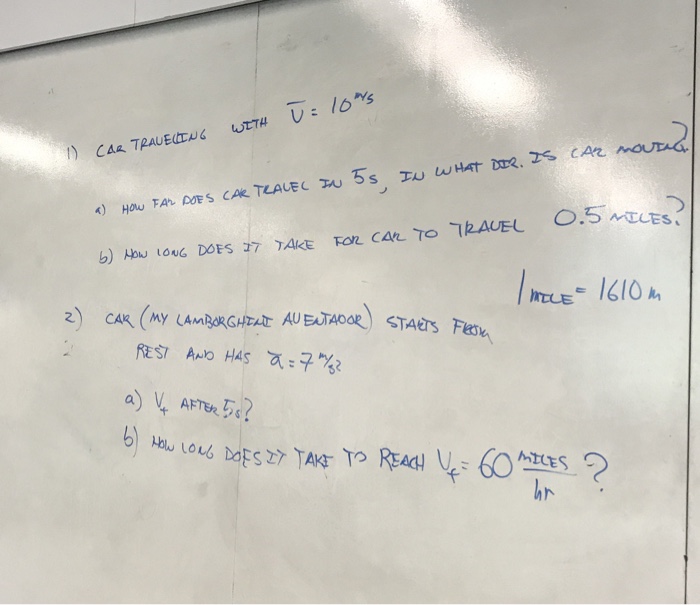 1) CAR TRAVELLING WITH V̄ = 10 m/s
a) HOW FAR DOES CAR TRAVEL IN 5s, IN WHAT DIR. IS CAR MOVING?
b) HOW LONG DOES IT TAKE FOR CAR TO TRAVEL 0.5 MILES?
1 MILE = 1610 m
2) CAR (MY LAMBORGHINI AVENTADOR) STARTS FROM
REST AND HAS ā = 7 m/s²
a) Vf AFTER 5s?
b) HOW LONG DOES IT TAKE TO REACH Vf = 60 MILES/hr ?